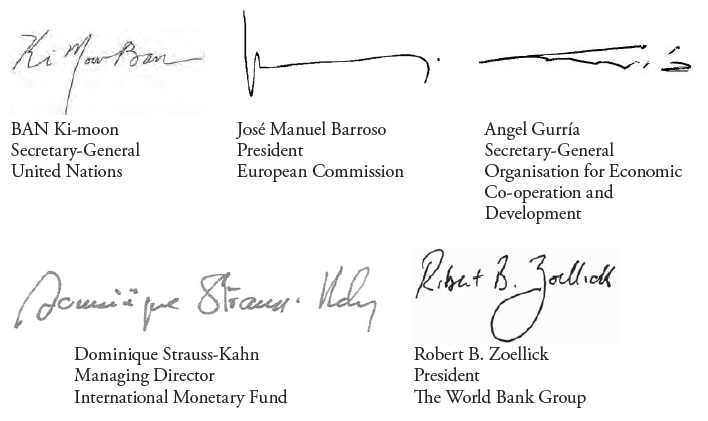 Ki Moon Ban
BAN Ki-moon
Secretary-General
United Nations
José Manuel Barroso
President
European Commission
Angel Gurría
Secretary-General
Organisation for Economic
Co-operation and
Development
Dominique Strauss-Kahn
Dominique Strauss-Kahn
Managing Director
International Monetary Fund
Robert B. Zoellick
Robert B. Zoellick
President
The World Bank Group